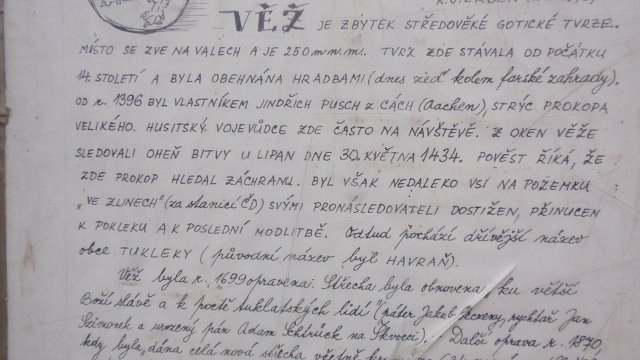 VĚŽ JE ZBYTEK STŘEDOVĚKÉ GOTICKÉ TVRZE.
MÍSTO SE ZVE NA VALECH A JE 250 m n. m. TVRZ ZDE STÁVALA OD POČÁTKU
14. STOLETÍ A BYLA OBEHNÁNA HRADBAMI (dnes zeď kolem farské zahrady).
OD r. 1396 BYL VLASTNÍKEM JINDŘICH PUSCH z CÁCH (Aachem), STRÝC PROKOPA
VELIKÉHO. HUSITSKÝ VOJEVŮDCE ZDE ČASTO NA NÁVŠTĚVĚ. Z OKEN VĚŽE
SLEDOVALI OHEŇ BITVY U LIPAN DNE 30. KVĚTNA 1434. POVĚST ŘÍKÁ, ŽE
ZDE PROKOP HLEDAL ZÁCHRANU. BYL VŠAK NEDALEKO VSI NA POZEMKU
„VE ZLINECH" (za stanicí ČD) SVÝMI PRONÁSLEDOVATELI DOSTIŽEN, PŘINUCEN
K POKLEKU A K POSLEDNÍ MODLITBĚ. Odtud pochází dřívější název
obce TUKLEKY (původní název byl HAVRAŇ).
Věž byla r. 1699 opravena. Střecha byla obnovena „ku větší
Boží slávě a k poctě tuklatských lidí" (páter Jakub rychtář Jan
a urozený pán Adam na Škvorci). Další oprava r. 1870
kdy byla „dána celá nová střecha včetně